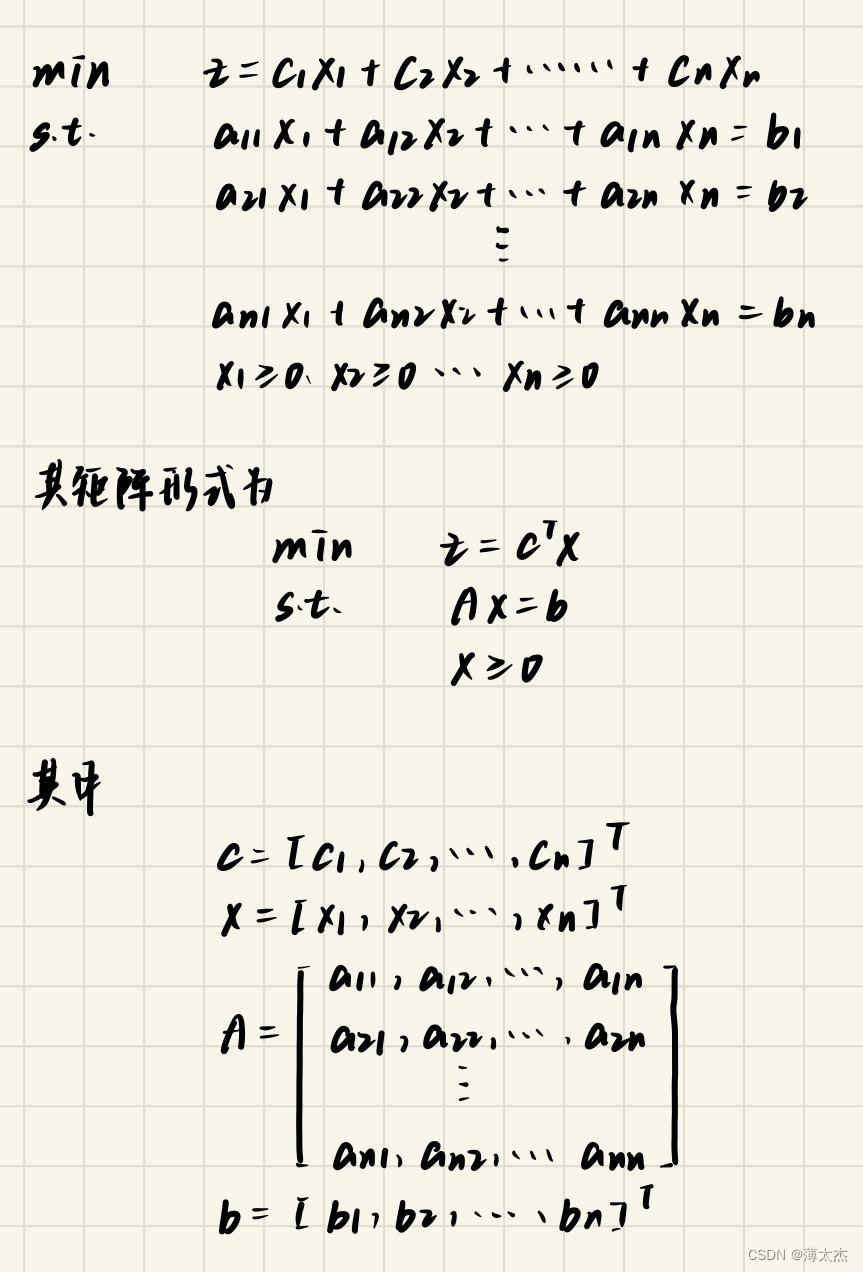 min z = c₁x₁ + c₂x₂ + ⋯⋯ + cₙxₙ
s.t. a₁₁x₁ + a₁₂x₂ + ⋯ + a₁ₙxₙ = b₁
a₂₁x₁ + a₂₂x₂ + ⋯ + a₂ₙxₙ = b₂
⋮
aₙ₁x₁ + aₙ₂x₂ + ⋯ + aₙₙxₙ = bₙ
x₁ ≥ 0、x₂ ≥ 0 ⋯ xₙ ≥ 0
其矩阵形式为
min z = cᵀx
s.t. Ax = b
x ≥ 0
其中
c = [c₁, c₂, ⋯, cₙ]ᵀ
x = [x₁, x₂, ⋯, xₙ]ᵀ
A = [ a₁₁, a₁₂, ⋯, a₁ₙ
a₂₁, a₂₂, ⋯, a₂ₙ
⋮
aₙ₁, aₙ₂, ⋯ aₙₙ ]
b = [b₁, b₂, ⋯, bₙ]ᵀ
CSDN @薄太杰